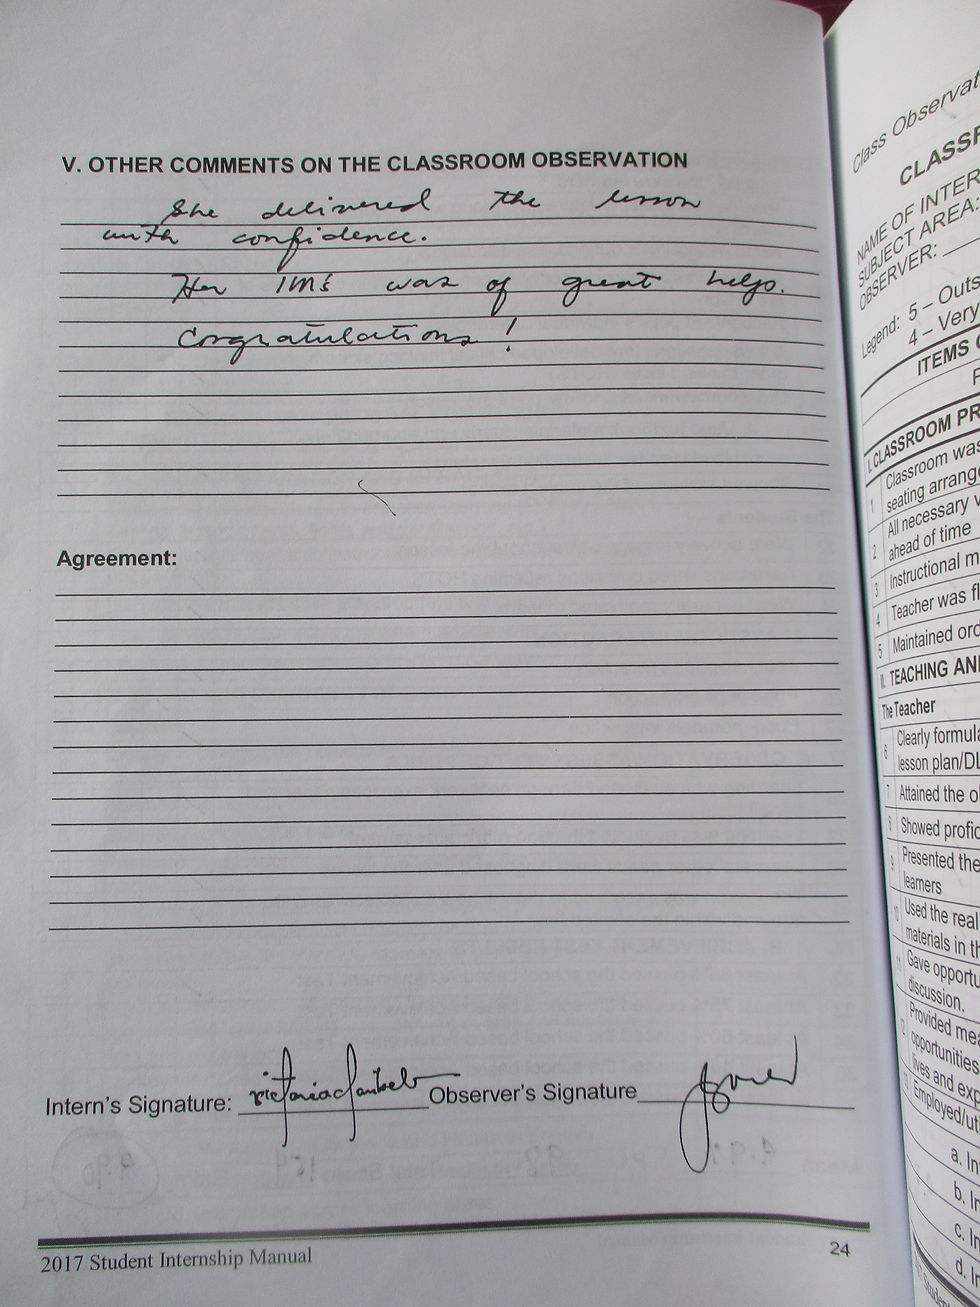 V. OTHER COMMENTS ON THE CLASSROOM OBSERVATION
She delivered the lesson
with confidence.
Her IMs was of great help.
Congratulations!
Agreement:
Intern's Signature: Observer's Signature
2017 Student Internship Manual
24
Class
CLASSR
NAME OF INTER
SUBJECT AREA:
OBSERVER:
Legend: 5 – Outs
4 – Very
ITEMS
I. CLASSROOM PR
1 Classroom was
seating arrang
2 All necessary v
ahead of time
3 Instructional m
4 Teacher was fl
5 Maintained ord
II. TEACHING AN
The Teacher
6 Clearly formula
lesson plan/DL
7 Attained the o
8 Showed profic
9 Presented the
learners
10 Used the real
materials in th
11 Gave opportu
discussion.
12 Provided mea
opportunities
lives and exp
13 Employed/ut
a. In
b. In
c. In
d. In